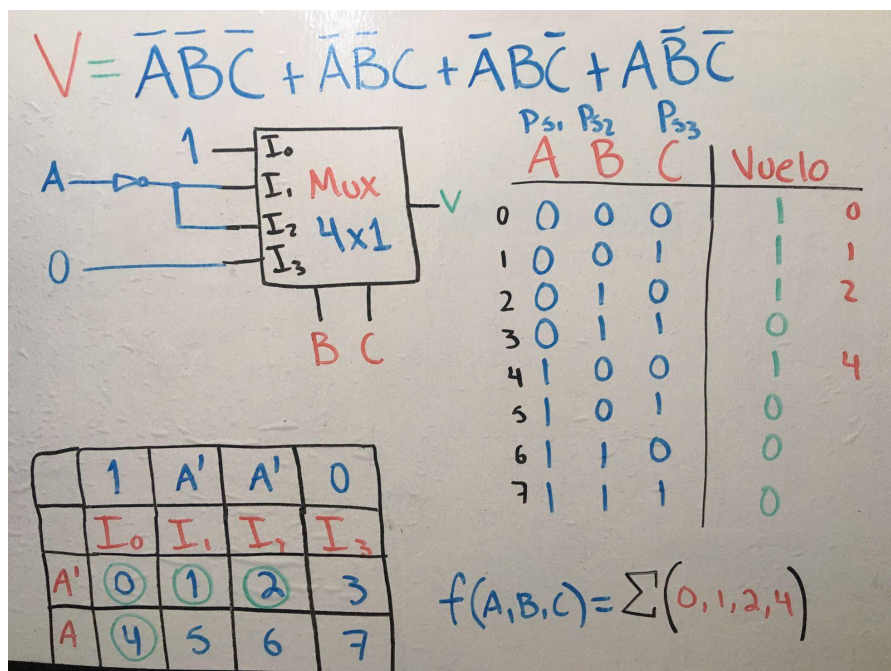 V = A̅ B̅ C̅ + A̅ B̅ C + A̅ B C̅ + A B̅ C̅
1 I₀
A I₁ Mux V
I₂ 4x1
0 I₃
B C
Ps₁ Ps₂ Ps₃
A B C Vuelo
0 0 0 0 1 0
1 0 0 1 1 1
2 0 1 0 1 2
3 0 1 1 0
4 1 0 0 1 4
5 1 0 1 0
6 1 1 0 0
7 1 1 1 0
1 A' A' 0
I₀ I₁ I₂ I₃
A' 0 1 2 3
A 4 5 6 7
f(A,B,C) = Σ(0,1,2,4)